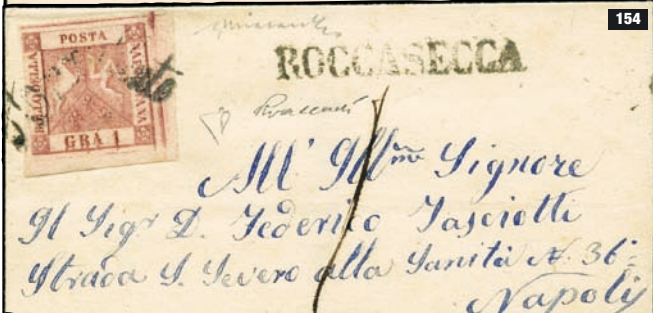 154
POSTA
NAPOLETANA
BOLLO DELLA
GRA 1
ROCCASECCA
All' Ill.mo Signore
Il Sigr D. Federico Tasciotti
Strada S. Severo alla Sanità N. 36=
Napoli